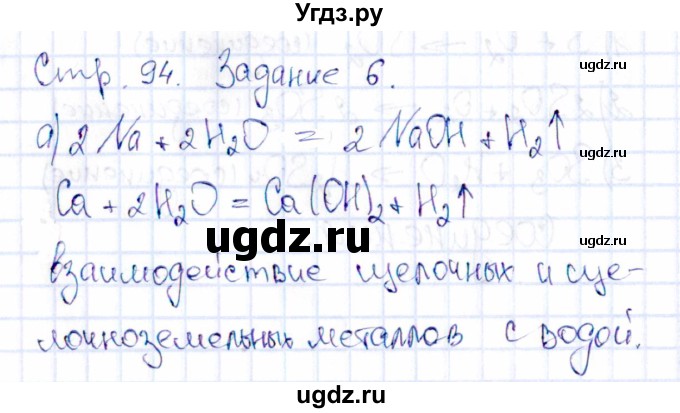 Угдз.ру
Стр. 94. Задание 6.
ugdz.ru
ugdz.ru
а) 2Na + 2H₂O = 2NaOH + H₂↑
Ca + 2H₂O = Ca(OH)₂ + H₂↑
ugdz.ru
ugdz.ru
ugdz.ru
взаимодействие щелочных и ще-
лочноземельных металлов с водой.
ugdz.ru
ugdz.ru